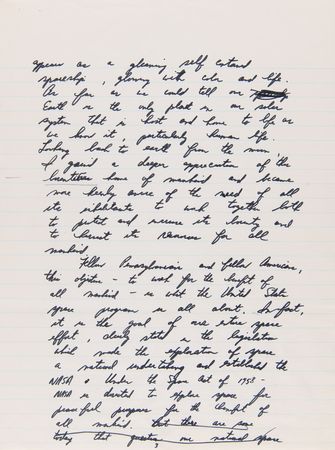 appears as a gleaming self contained
spaceship, glowing with color and life.
As far as we could tell our
Earth is the only planet in our solar
system that is host and home to life as
we know it, particularly human life.
Looking back to earth from the moon
I gained a deeper appreciation of this
home of mankind and became
more keenly aware of the need of all
its inhabitants to work together both
to protect and its beauty and
to harvest its resources for all
mankind.
Fellow Pennsylvanians and fellow Americans,
this objective - to work for the benefit of
all mankind - is what the United States
space program is all about. In fact,
it is the goal of our entire space
effort, clearly stated in the legislation
which made the exploration of space
a national undertaking and established the
NASA. Under the Space Act of 1958 -
NASA is devoted to explore space for
peaceful purposes for the benefit of
all mankind. But there are some
today that question our national space